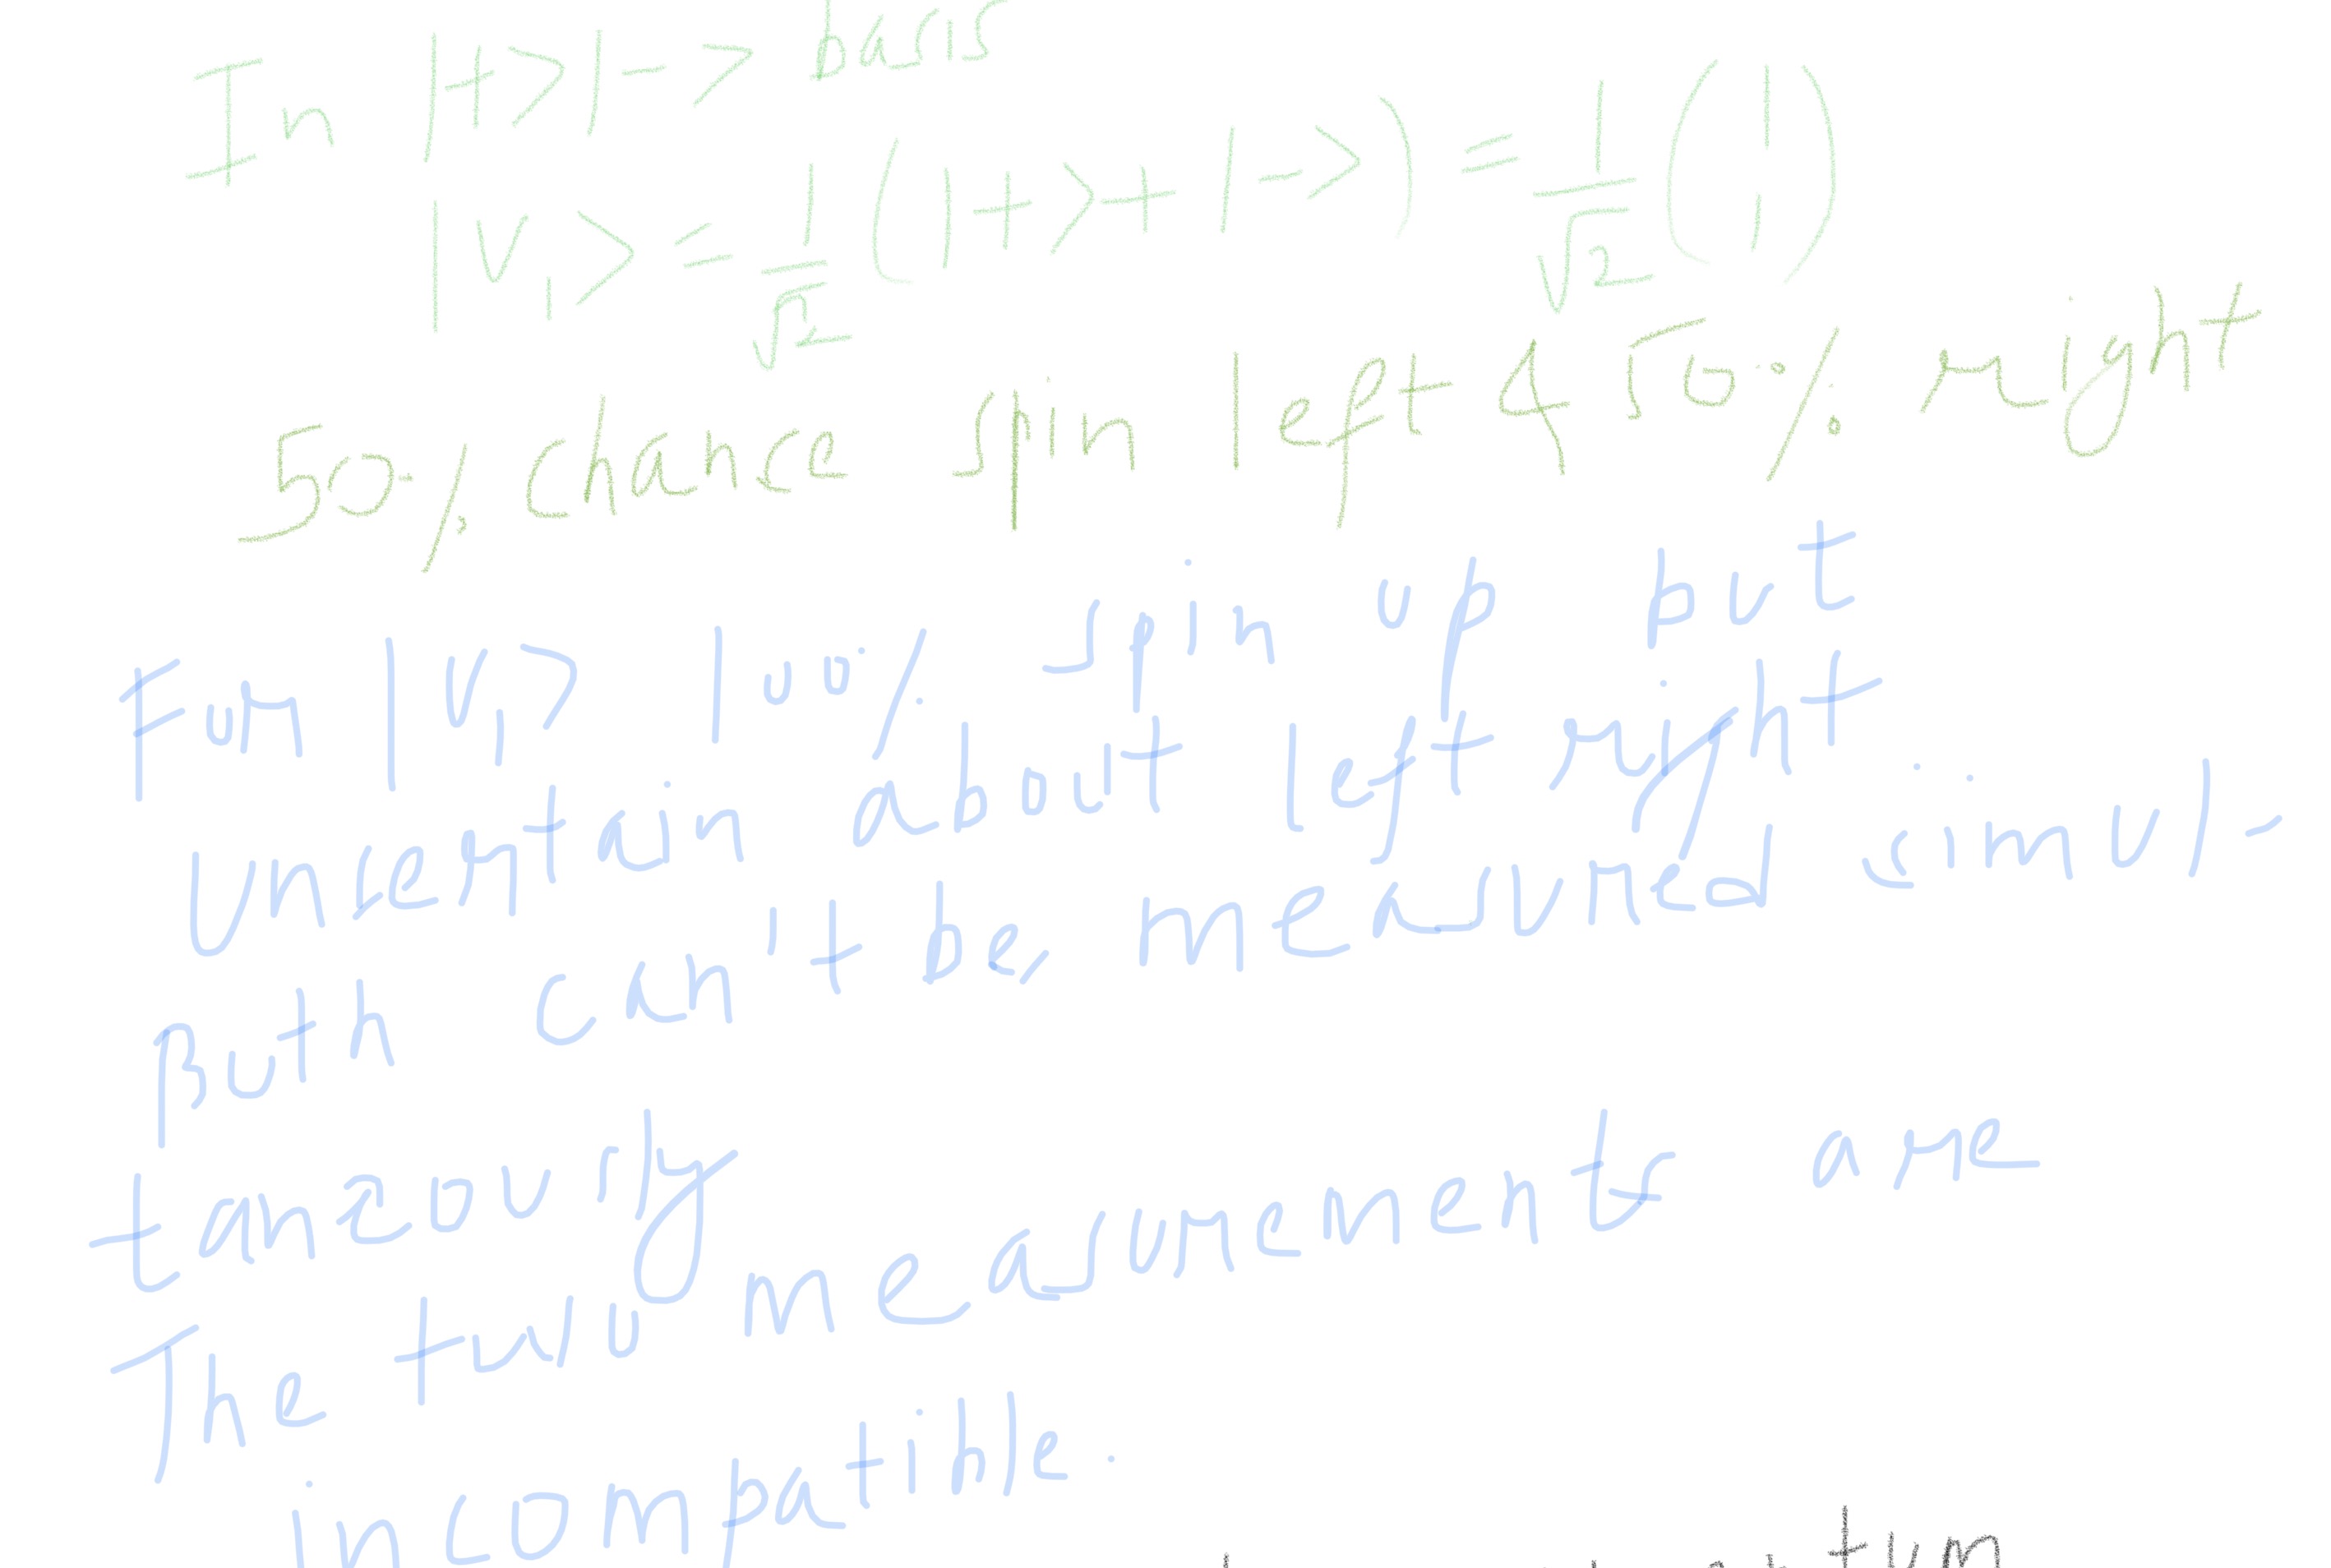 In |+>|-> basis
|V₁> = 1/√2 (|+> + |->) = 1/√2 (1 1)
50% chance spin left & 50% right
For |V₁> 100% spin up but
uncertain about left right
Both can't be measured simul-
tanzously
The two measurements are
incompatible.